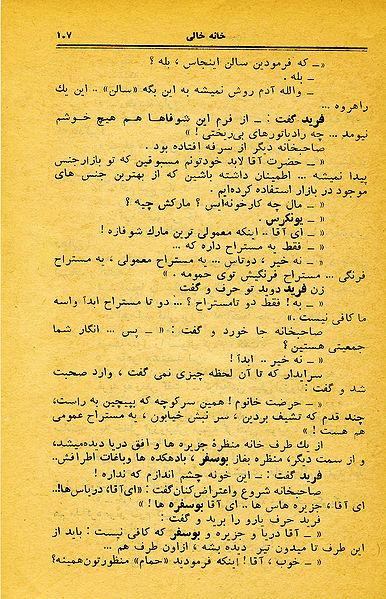 خانه خالی ۱۰۷
«ـ که فرمودین سالن اینجاس ، بله ؟
ـ بله .
ـ والله آدم روش نمیشه به این بگه «سالن» .. این یك
راهروه ...
فرید گفت : ـ از فرم این شوفاها هم هیچ خوشم
نیومد ... چه رادیاتورهای بی‌ریختی ! »
صاحبخانه دیگر از سرفه افتاده بود .
«ـ حضرت آقا لابد خودتونم مسبوقین که تو بازارجنس
پیدا نمیشه ... اطمینان داشته باشین که از بهترین جنس های
موجود در بازار استفاده کرده‌ایم .
«ـ مال چه کارخونه‌ایس ؟ مارکش چیه ؟
«ـ یونکرس .
«ـ ای آقا .. اینکه معمولی ترین مارك شوفازه !
«ـ فقط یه مستراح داره که ...
«ـ نه خیر ، دوتاس ... یه مستراح معمولی ، یه مستراح
فرنگی ... مستراح فرنگیش توی حمومه . »
زن فرید دوید تو حرف و گفت
«ـ یه ! فقط دو تامستراح ؟ ... دو تا مستراح ابداً واسه
ما کافی نیست . »
صاحبخانه جا خورد و گفت : «ـ پس ... انگار شما
جمعیتی هستین ؟
«ـ نه خیر .. ابداً !
سرایدار که تا آن لحظه چیزی نمی گفت ، وارد صحبت
شد و گفت :
«ـ حرضت خانوم ! همین سرکوچه که بپیچین به راست،
چند قدم که تشیف بردین ، سر نبش خیابون ، یه مستراح عمومی
هم هست ! »
از یك طرف خانه منظرهٔ جزیره ها و افق دریا دیده‌میشد،
و از سمت دیگر، منظره بغاز بوسفر ، بادهکده ها وباغات اطرافش..
فرید گفت : ـ این خونه چشم اندازم که نداره !
صاحبخانه شروع واعتراض‌کنان‌گفت : «ای‌آقا، دریاس‌ها!..
ای آقا ، جزیره هاس ها .. ای آقا بوسفره ها ! »
فرید حرف یارو را برید و گفت :
«ـ آقا دریا و جزیره و بوسفر که کافی نیست : باید از
این طرف تا میدون تیر دیده بشه ، ازاون طرف هم ...
«ـ خوب ، آقا ! اینکه فرمودید «حمام» منظورتون‌همینه؟